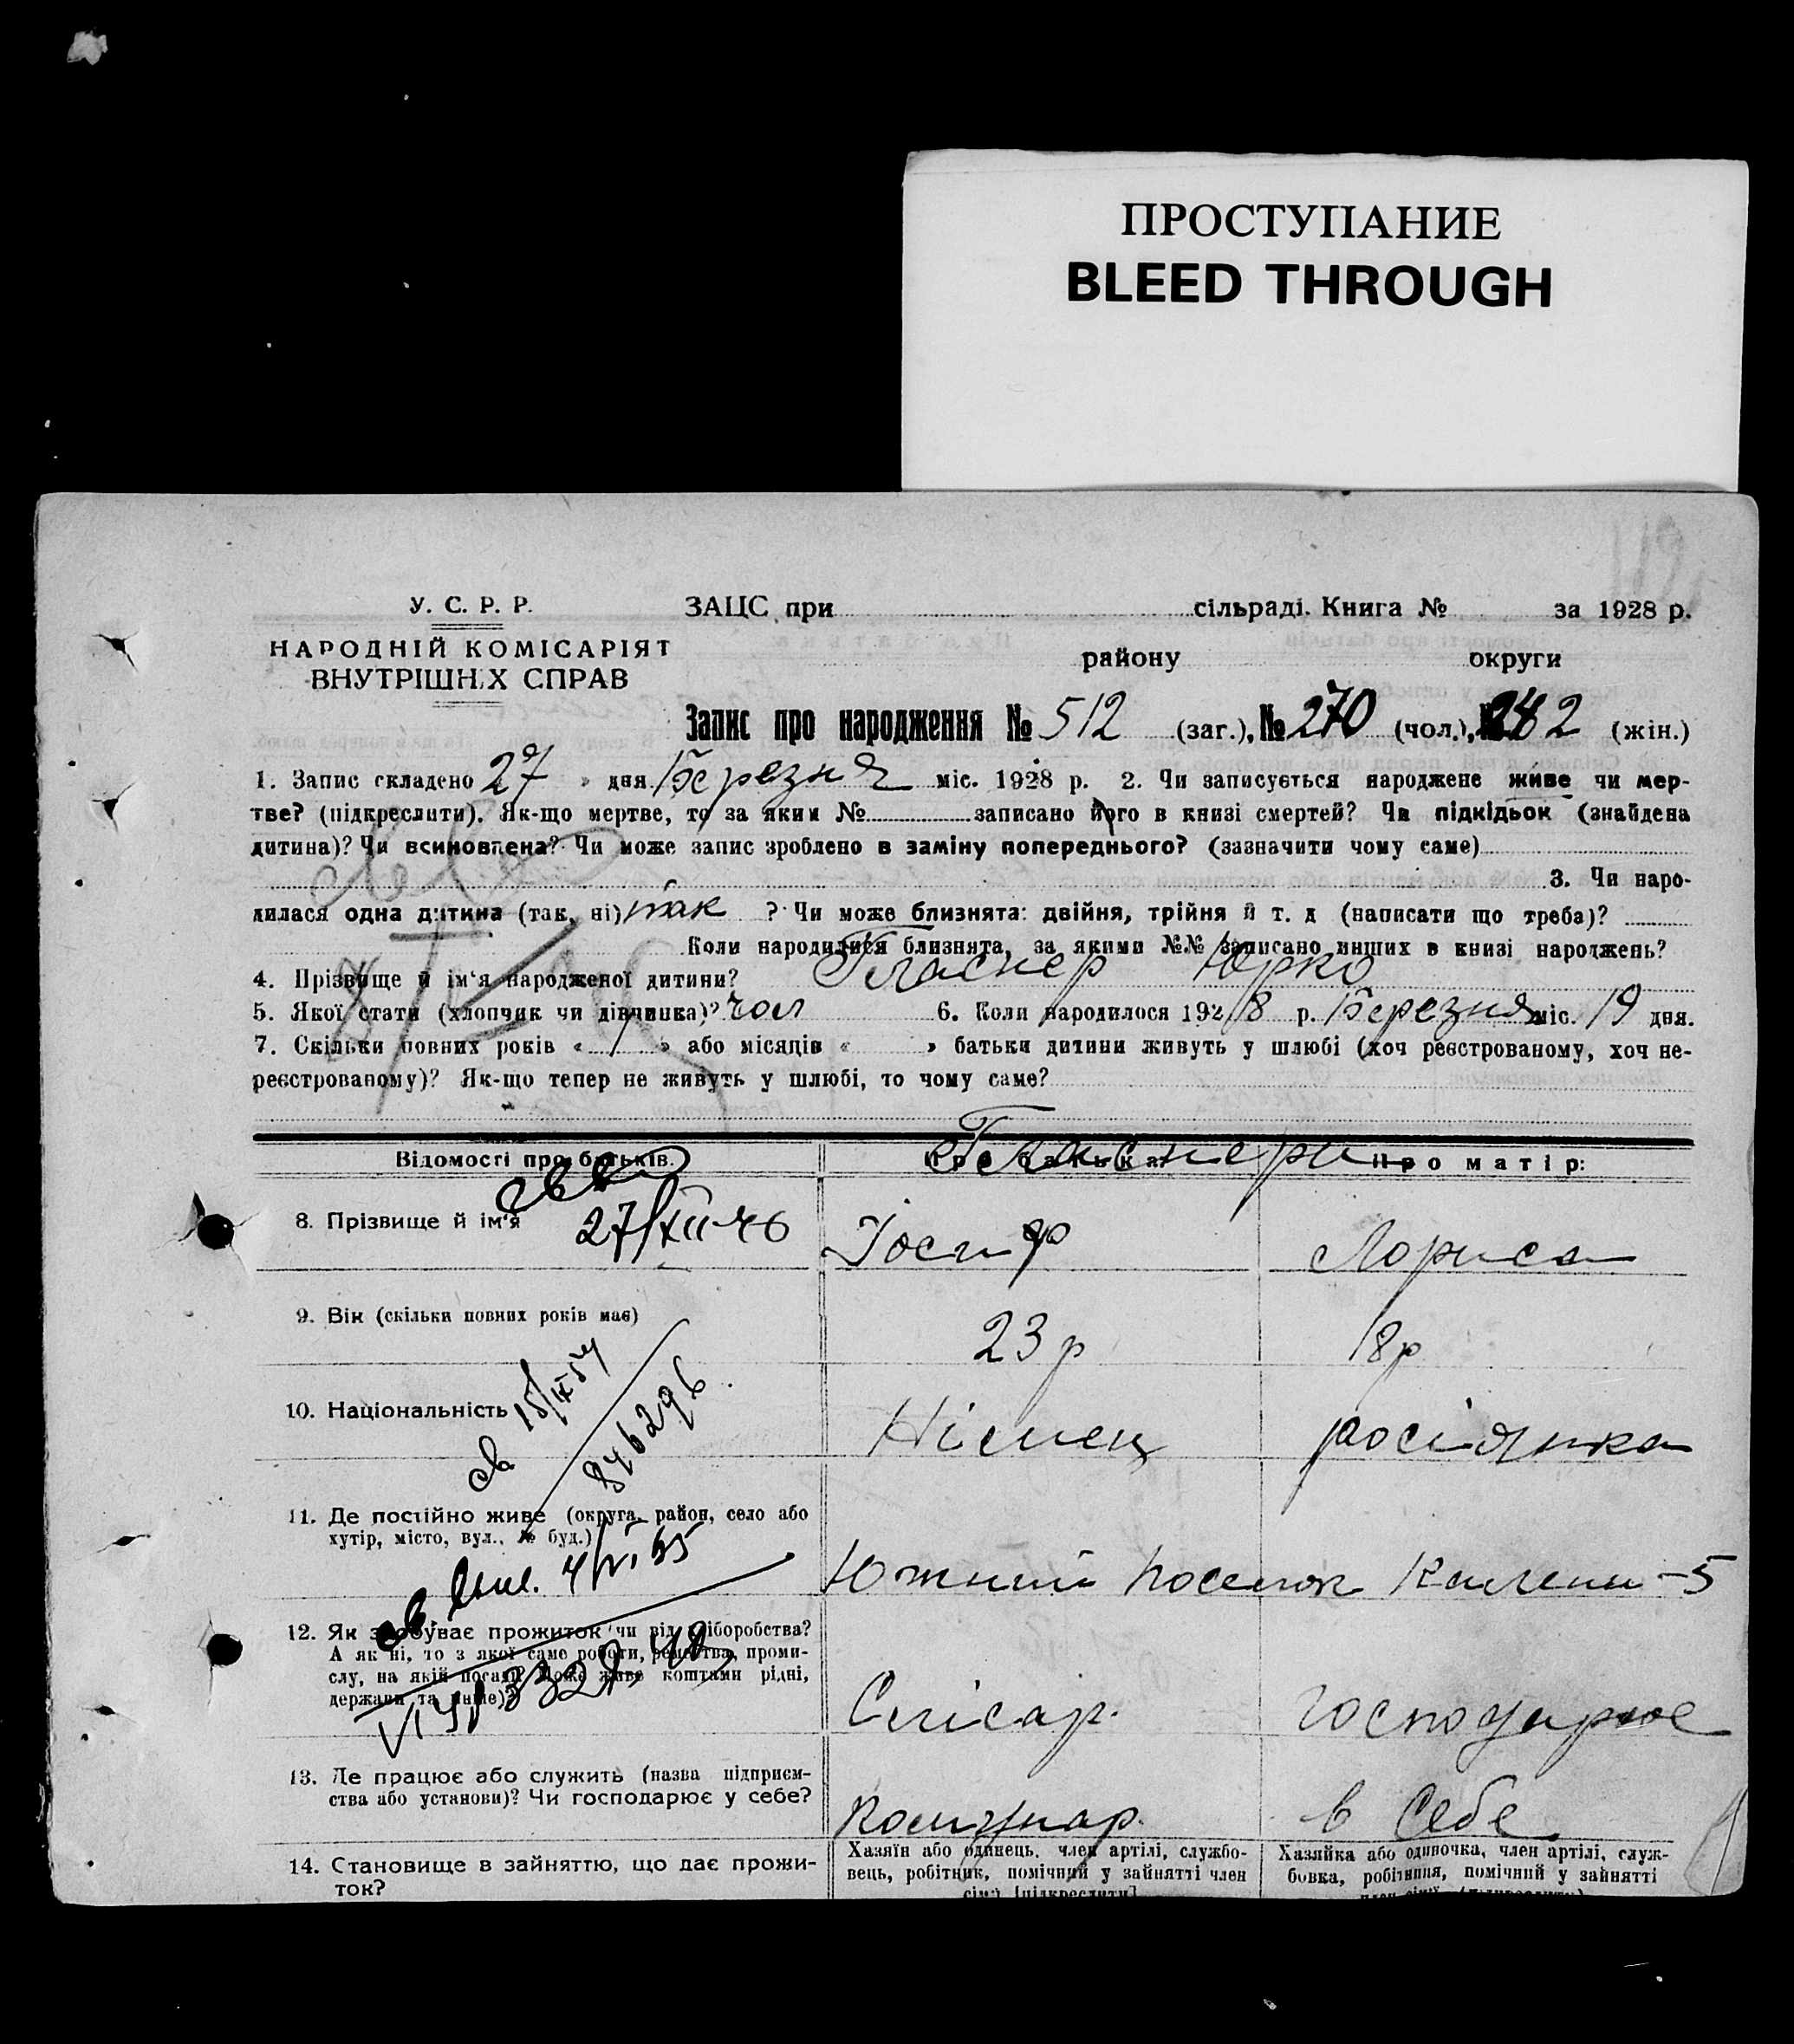 ПРОСТУПАНИЕ
BLEED THROUGH
У. С. Р. Р.
ЗАЦС при сільраді. Книга № за 1928 р.
НАРОДНІЙ КОМІСАРІЯТ
ВНУТРІШНІХ СПРАВ
району округи
Запис про народження № 512 (заг.), № 270 (чол.), № 242 (жін.)
1. Запис складено 27 » дня Березня міс. 1928 р. 2. Чи записується народжене живе чи мер-
тве? (підкреслити). Як-що мертве, то за яким № записано його в книзі смертей? Чи підкідьок (знайдена
дитина)? Чи всиновлена? Чи може запис зроблено в заміну попереднього? (зазначити чому саме)
3. Чи наро-
дилася одна дитина (так, ні) так ? Чи може близнята: двійня, трійня й т. д (написати що треба)?
Коли народилися близнята, за якими №№ записано инших в книзі народжень?
4. Прізвище й ім'я народженої дитини? Гласнер Юрко
5. Якої стати (хлопчик чи дівчинка)? чол 6. Коли народилося 1928 р. Березня міс. 19 дня.
7. Скільки повних років « 1 » або місяців « » батьки дитини живуть у шлюбі (хоч реєстрованому, хоч не-
реєстрованому)? Як-що тепер не живуть у шлюбі, то чому саме?
Відомості про батьків. Про батька: Про матір:
Гласнери
8. Прізвище й ім'я 27/XII-46 Йосиф Лориса
9. Вік (скільки повних років має) 23 р 18 р
15/IX 54
10. Національність Німець росіянка
846296
11. Де постійно живе (округа, район, село або
хутір, місто, вул., № буд.)
Южний поселок Камени-5
12. Як здобуває прожиток чи від хліборобства?
А як ні, то з якої саме роботи, ремества, проми-
слу, на якій посаді? Може живе коштами рідні,
держави та инше)?
Слісар. господарює
13. Де працює або служить (назва підприєм-
ства або установи)? Чи господарює у себе?
Комунар. в себе
14. Становище в зайняттю, що дає прожи-
ток?
Хазяїн або одинець, член артілі, службо-
вець, робітник, помічний у зайнятті член
сім'ї [підкреслити]
Хазяйка або одиночка, член артілі, служ-
бовка, робітниця, помічний у зайнятті